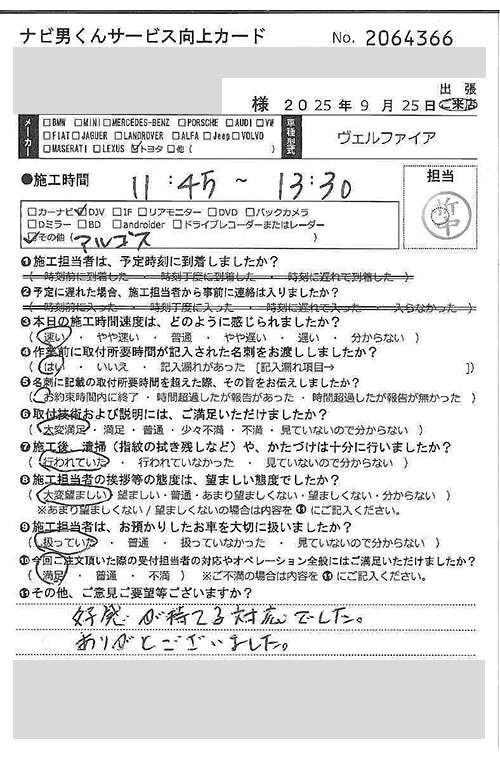 ナビ男くんサービス向上カード No. 2064366
様 2025年9月25日 出張 ご来店
メーカー □BMW □MINI □MERCEDES-BENZ □PORSCHE □AUDI □VW
□FIAT □JAGUER □LANDROVER □ALFA □Jeep □VOLVO
□MASERATI □LEXUS ☑トヨタ □他 ( )
車種型式 ヴェルファイア
●施工時間 11:45 ~ 13:30
担当
□カーナビ ☑DJV □IF □リアモニター □DVD □バックカメラ
□Dミラー □BD □androider □ドライブレコーダーまたはレーダー
☑その他 ( アルゴス )
❶施工担当者は、予定時刻に到着しましたか?
( 時刻前に到着した ・ 時刻丁度に到着した ・ 時刻に遅れて到着した )
❷予定に遅れた場合、施工担当者から事前に連絡は入りましたか?
( 時刻前に入った ・ 時刻丁度に入った ・ 時刻に遅れて入った ・ 入らなかった )
❸本日の施工時間速度は、どのように感じられましたか?
( 速い ・ やや速い ・ 普通 ・ やや遅い ・ 遅い ・ 分からない )
❹作業前に取付所要時間が記入された名刺をお渡ししましたか?
( はい ・ いいえ ・ 記入漏れがあった [記入漏れ項目→ ])
❺名刺に記載の取付所要時間を超えた際、その旨をお伝えしましたか?
( お約束時間内に終了 ・ 時間超過したが報告があった ・ 時間超過したが報告が無かった )
❻取付技術および説明には、ご満足いただけましたか?
( 大変満足 ・ 満足 ・ 普通 ・ 少々不満 ・ 不満 ・ 見ていないので分からない )
❼施工後、清掃(指紋の拭き残しなど)や、かたづけは十分に行いましたか?
( 行われていた ・ 行われていなかった ・ 見ていないので分からない )
❽施工担当者の挨拶等の態度は、望ましい態度でしたか?
( 大変望ましい ・ 望ましい ・ 普通 ・ あまり望ましくない ・ 望ましくない ・ 分からない )
※あまり望ましくない / 望ましくないの場合は内容を⓫にご記入ください。
❾施工担当者は、お預かりしたお車を大切に扱いましたか?
( 扱っていた ・ 普通 ・ 扱っていなかった ・ 見ていないので分からない )
❿今回ご注文頂いた際の受付担当者の対応やオペレーション全般にはご満足いただけましたか?
( 満足 ・ 普通 ・ 不満 ) ※ご不満の場合は内容を⓫にご記入ください。
⓫その他、ご意見ご要望等ございますか?
好感が持てる対応でした。
ありがとうございました。